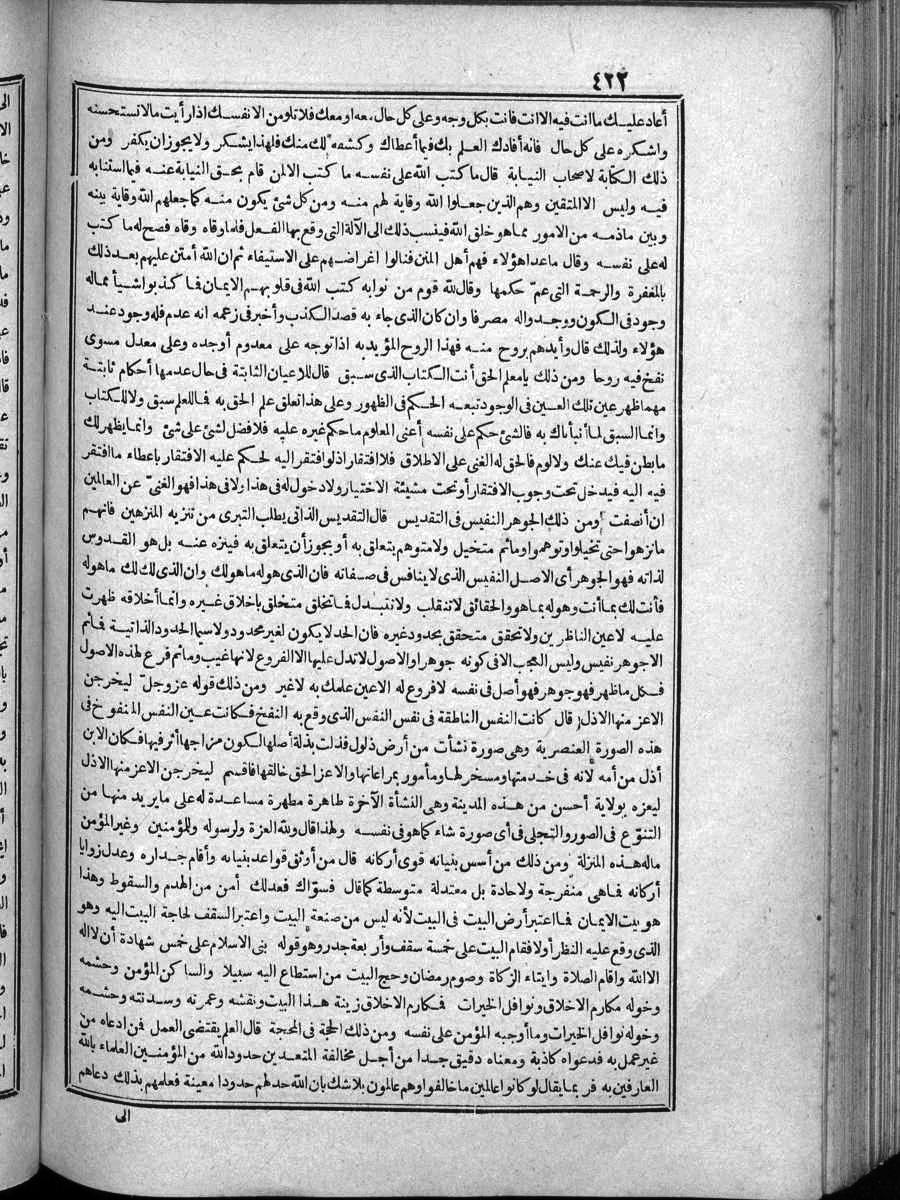 ٤٢٢
أعاد عليك ما أنت فيه الا انت فانت بكل وجه وعلى كل حال معه او معك فلا تلومن الا نفسك اذا رأيت ما لا تستحسنه
واشكره على كل حال فانه أفادك العلم بك فيما أعطاك وكشفه لك منك فلهذا يشكر ولا يجوز ان يكفر ومن
ذلك الكتابة لاصحاب النيابة قال ما كتب الله على نفسه ما كتب الا لمن قام بحق النيابة عنه فيما استنابه
فيه وليس الا المتقين وهم الذين جعلوا الله وقاية لهم منه ومن كل شئ يكون منه كما جعلهم الله وقاية بينه
وبين ماذمه من الامور مما هو خلق الله فينسب ذلك الى الآلة التى وقع بها الفعل فلما وقاه وقاه فصح له ما كتب
له على نفسه وقال ما عدا هؤلاء فهم أهل المنن فنالوا اغراضهم على الاستيفاء ثم ان الله أمتن عليهم بعد ذلك
بالمغفرة والرحمة التى عمّ حكمها وقال لله قوم من نوابه كتب الله فى قلوبهم الايمان فما كذبوا شيأ مماله
وجود فى الكون ووجدوا له مصرفا وان كان الذى جاء به قصد الكذب وأخبر فى زعمه انه عدم فله وجود عند
هؤلاء ولذلك قال وأيدهم بروح منه فهذا الروح المؤيد به اذا توجه على معدوم أوجده وعلى معدل مسوى
نفخ فيه روحا ومن ذلك يا معلم الحق أنت الكتاب الذى سبق قال للاعيان الثابتة فى حال عدمها أحكام ثابتة
مهما ظهر عين تلك العين فى الوجود تبعه الحكم فى الظهور وعلى هذا تعلق علم الحق به فما للعلم سبق ولا للكتاب
وانما السبق لما أنبأناك به فالشئ حكم على نفسه أعنى المعلوم ما حكم غيره عليه فلا فضل لشئ على شئ وانما يظهر لك
ما بطن فيك عنك ولا لوم فالحق له الغنى على الاطلاق فلا افتقار اذ لو افتقر اليه لحكم عليه الافتقار باعطاء ما افتقر
فيه اليه فيدخل تحت وجوب الافتقار أو تحت مشيئة الاختيار ولا دخول له فى هذا ولا فى هذا فهو الغنىّ عن العالمين
ان أنصفت ومن ذلك الجوهر النفيس فى التقديس قال التقديس الذاتى يطلب التبرى من تنزيه المنزهين فانهم
ما نزهوا حتى تخيلوا وتوهموا وما ثم متخيل ولا متوهم يتعلق به أو يجوز أن يتعلق به فينزه عنه بل هو القدوس
لذاته فهو الجوهر أى الاصل النفيس الذى لا ينافس فى صفاته فان الذى هو له ما هو لك وان الذى لك لك ما هو له
فأنت لك بما أنت وهو له بما هو والحقائق لا تنقلب ولا تتبدل فما تخلق متخلق باخلاق غيره وانما أخلاقه ظهرت
عليه لاعين الناظرين ولا تحقق متحقق بحدود غيره فان الحد لا يكون لغير محدود ولا سيما الحدود الذاتية فما ثم
الا جوهر نفيس وليس العجب الا فى كونه جوهرا والاصول لا تدل عليها الا الفروع لانها غيب وما ثم فرع لهذه الاصول
فكل ما ظهر فهو جوهر فهو أصل فى نفسه لا فروع له الاعين علمك به لا غير ومن ذلك قوله عز وجل ليخرجن
الاعز منها الاذل قال كانت النفس الناطقة فى نفس النفس الذى وقع به النفخ فكانت عين النفس المنفوخ فى
هذه الصورة العنصرية وهى صورة نشأت من أرض ذلول فذلت بذلة أصلها لكون مزاجها أثر فيها فكان الابن
أذل من أمه لانه فى خدمتها ومسخر لها ومأمور بمراعاتها والاعز الحق خالقها فاقسم ليخرجن الاعز منها الاذل
ليعزه بولاية أحسن من هذه المدينة وهى النشأة الآخرة طاهرة مطهرة مساعدة له على ما يريد منها من
التنوّع فى الصور والتجلى فى أى صورة شاء كما هو فى نفسه ولهذا قال ولله العزة ولرسوله وللمؤمنين وغير المؤمن
ماله هذه المنزلة ومن ذلك من أسس بنيانه قوى أركانه قال من أوثق قواعد بنيانه وأقام جداره وعدل زوايا
أركانه فما هى منفرجة ولا حادة بل معتدلة متوسطة كما قال فسوّاك فعدلك أمن من الهدم والسقوط وهذا
هو بيت الايمان فما اعتبر أرض البيت فى البيت لأنه ليس من صنعة البيت واعتبر السقف لحاجة البيت اليه وهو
الذى وقع عليه النظر أولا فقام البيت على خمسة سقف وأربعة جدر وهو قوله بنى الاسلام على خمس شهادة أن لا اله
الا الله واقام الصلاة وايتاء الزكاة وصوم رمضان وحج البيت من استطاع اليه سبيلا والساكن المؤمن وحشمه
وخوله مكارم الاخلاق ونوافل الخيرات فمكارم الاخلاق زينة هذا البيت ونقشه وعمرته وسدنته وحشمه
وخوله نوافل الخيرات وما أوجبه المؤمن على نفسه ومن ذلك الحجة فى المحجة قال العلم يقتضى العمل فمن ادعاه من
غير عمل به فدعواه كاذبة ومعناه دقيق جدا من أجل مخالفة المتعدين حدود الله من المؤمنين العلماء بالله
العارفين به فربما يقال لو كانوا عالمين ما خالفوا وهم عالمون بلا شك بان الله حد لهم حدودا معينة فعلمهم بذلك دعاهم
الى